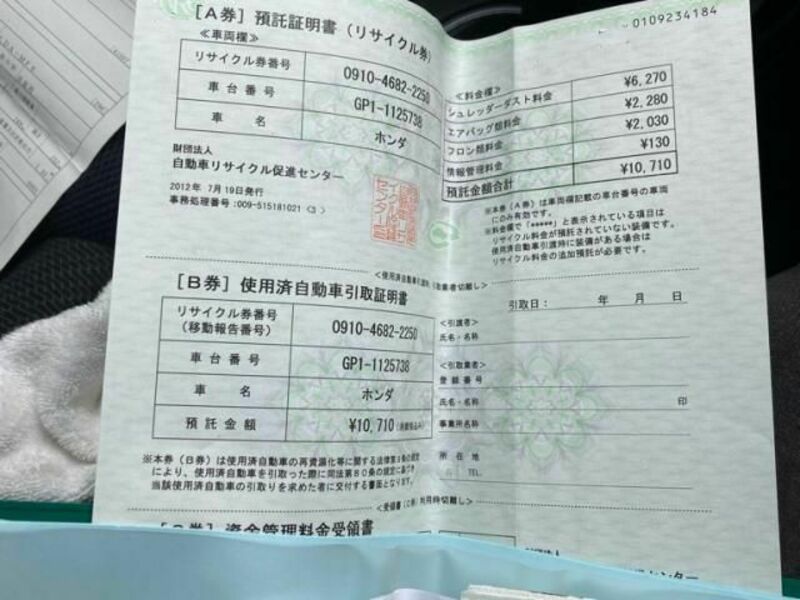 0109234184
[A券] 預託証明書 (リサイクル券)
≪車両欄≫
リサイクル券番号 0910-4682-2250
車台番号 GP1-1125738
車名 ホンダ
財団法人
自動車リサイクル促進センター
2012年 7月19日発行
事務処理番号:009-515181021 <3>
≪料金欄≫
シュレッダーダスト料金 ¥6,270
エアバッグ類料金 ¥2,280
フロン類料金 ¥2,030
情報管理料金 ¥130
預託金額合計 ¥10,710
※本券(A券)は車両欄記載の車台番号の車両
にのみ有効です。
※料金欄で「*****」と表示されている項目は
リサイクル料金が預託されていない装備です。
使用済自動車引渡時に装備がある場合は
リサイクル料金の追加預託が必要です。
[B券] 使用済自動車引取証明書
リサイクル券番号
(移動報告番号) 0910-4682-2250
車台番号 GP1-1125738
車名 ホンダ
預託金額 ¥10,710
※本券(B券)は使用済自動車の再資源化等に関する法律第3条の規定
により、使用済自動車を引取った際に同法第80条の規定に基づき
当該使用済自動車の引取りを求めた者に交付する書面となります。
引取日: 年 月 日
<引渡者>
氏名・名称
<引取業者>
登録番号
氏名・名称 印
事業所名称
所在地
TEL.
資金管理料金受領書